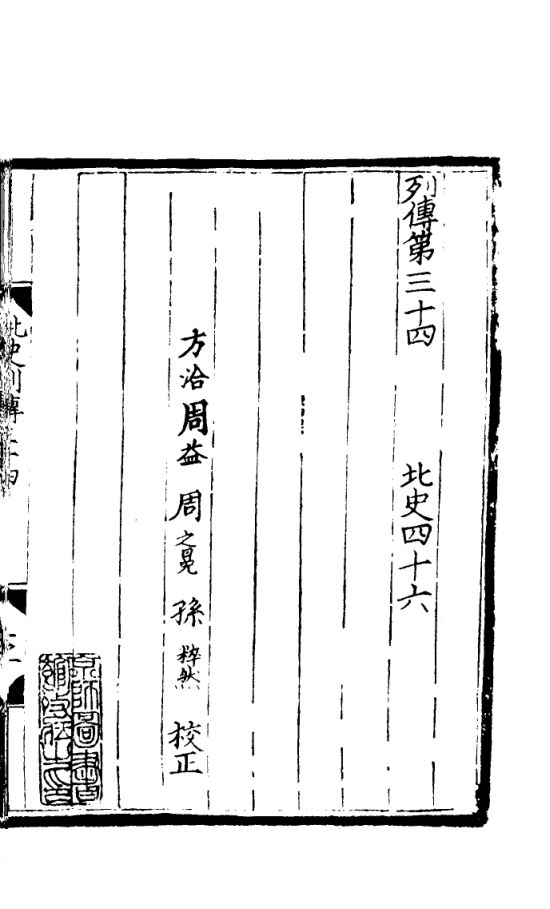 列傳第三十四 北史四十六
方洽 周益 周之冕 孫粹然 校正
北史列傳三十四
京師圖書